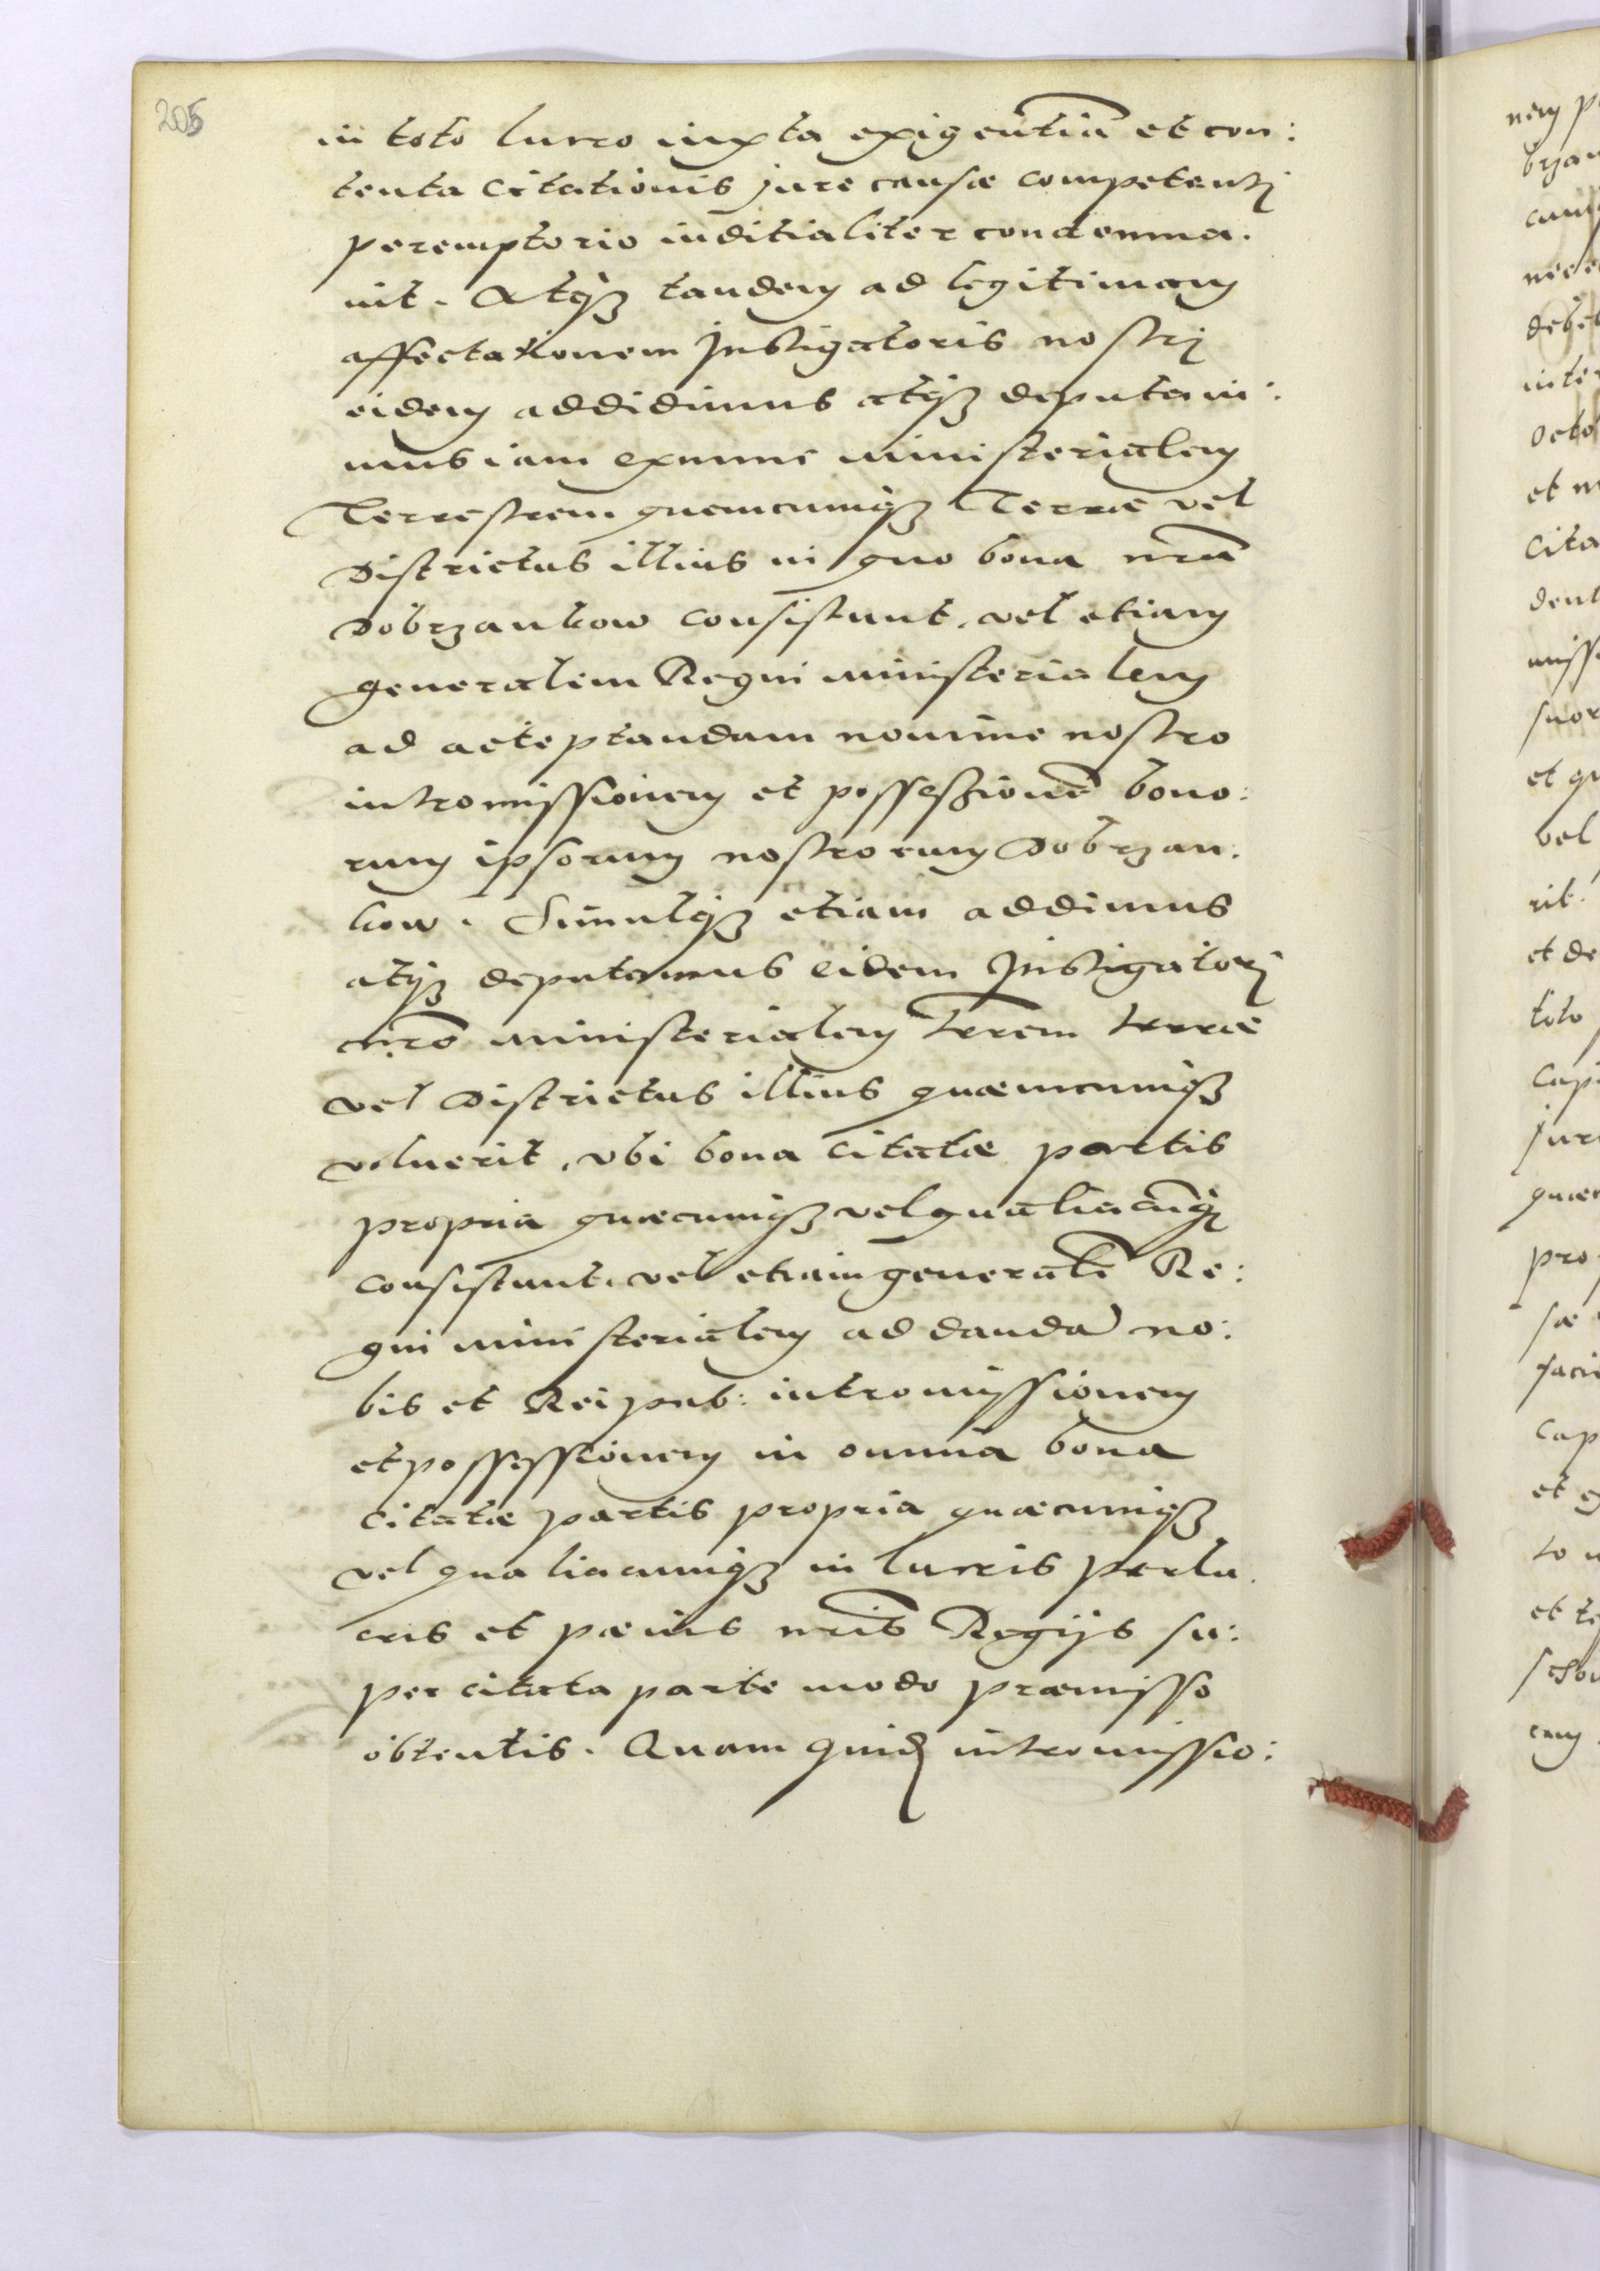 205
in toto lucro iuxta exigentiā et con:
tenta Citationis jure causæ competentj
peremptorio iuditialiter condemna.
uit. Atq3 tandem ad legitimam
affectationem Instigatoris nostrj
eidem addidimus atq3 deputaui:
mus iam exnunc ministerialem
Terrestrem quemcunq3 Terræ vel
Districtus illius in quo bona nrā
Dobrzankow consistunt, vel etiam
generalem Regni ministerialem
ad acceptandam nomine nostro
intromissionem et possessionē bono:
rum ipsorum nostrorum Dobrzan:
kow. Simulq3 etiam addimus
atq3 deputamus eidem Instigatorj
nrō ministerialem trrem terræ
vel Districtus illius quæmcunq3
voluerit, vbi bona Citatæ partis
propria quæcunq3 vel qualiacūq3
consistunt, vel etiam generalē Re:
gni ministerialem ad dandā no:
bis et Rei pub: intromissionem
et possessionem in omnia bona
Citatæ partis propria quæcunq3
vel qualiacunq3 in lucris perlu.
cris et pænis nrīs Regijs su:
per citata parte modo præmisso
obtentis. Quam quid intromissio: